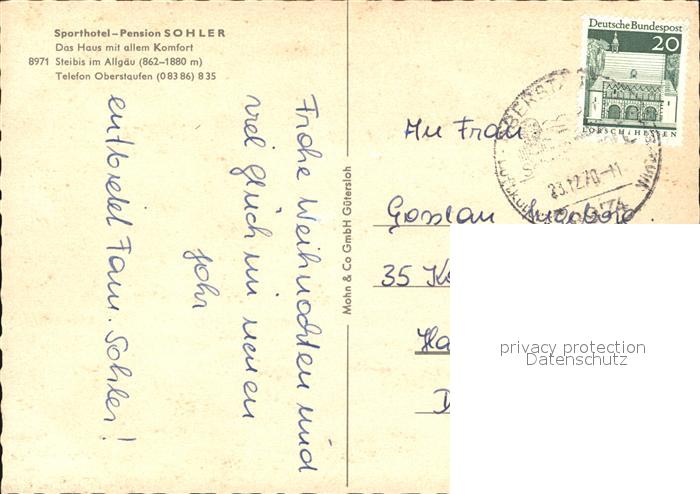 Sporthotel–Pension SOHLER
Das Haus mit allem Komfort
8971 Steibis im Allgäu (862–1880 m)
Telefon Oberstaufen (08386) 835
Frohe Weihnachten und
viel Glück im neuen
Jahr
entbietet Fam. Sohler!
Mohn & Co GmbH Gütersloh
Deutsche Bundespost
20
LORSCH/HESSEN
23.12.70-11
An Frau
35
privacy protection
Datenschutz